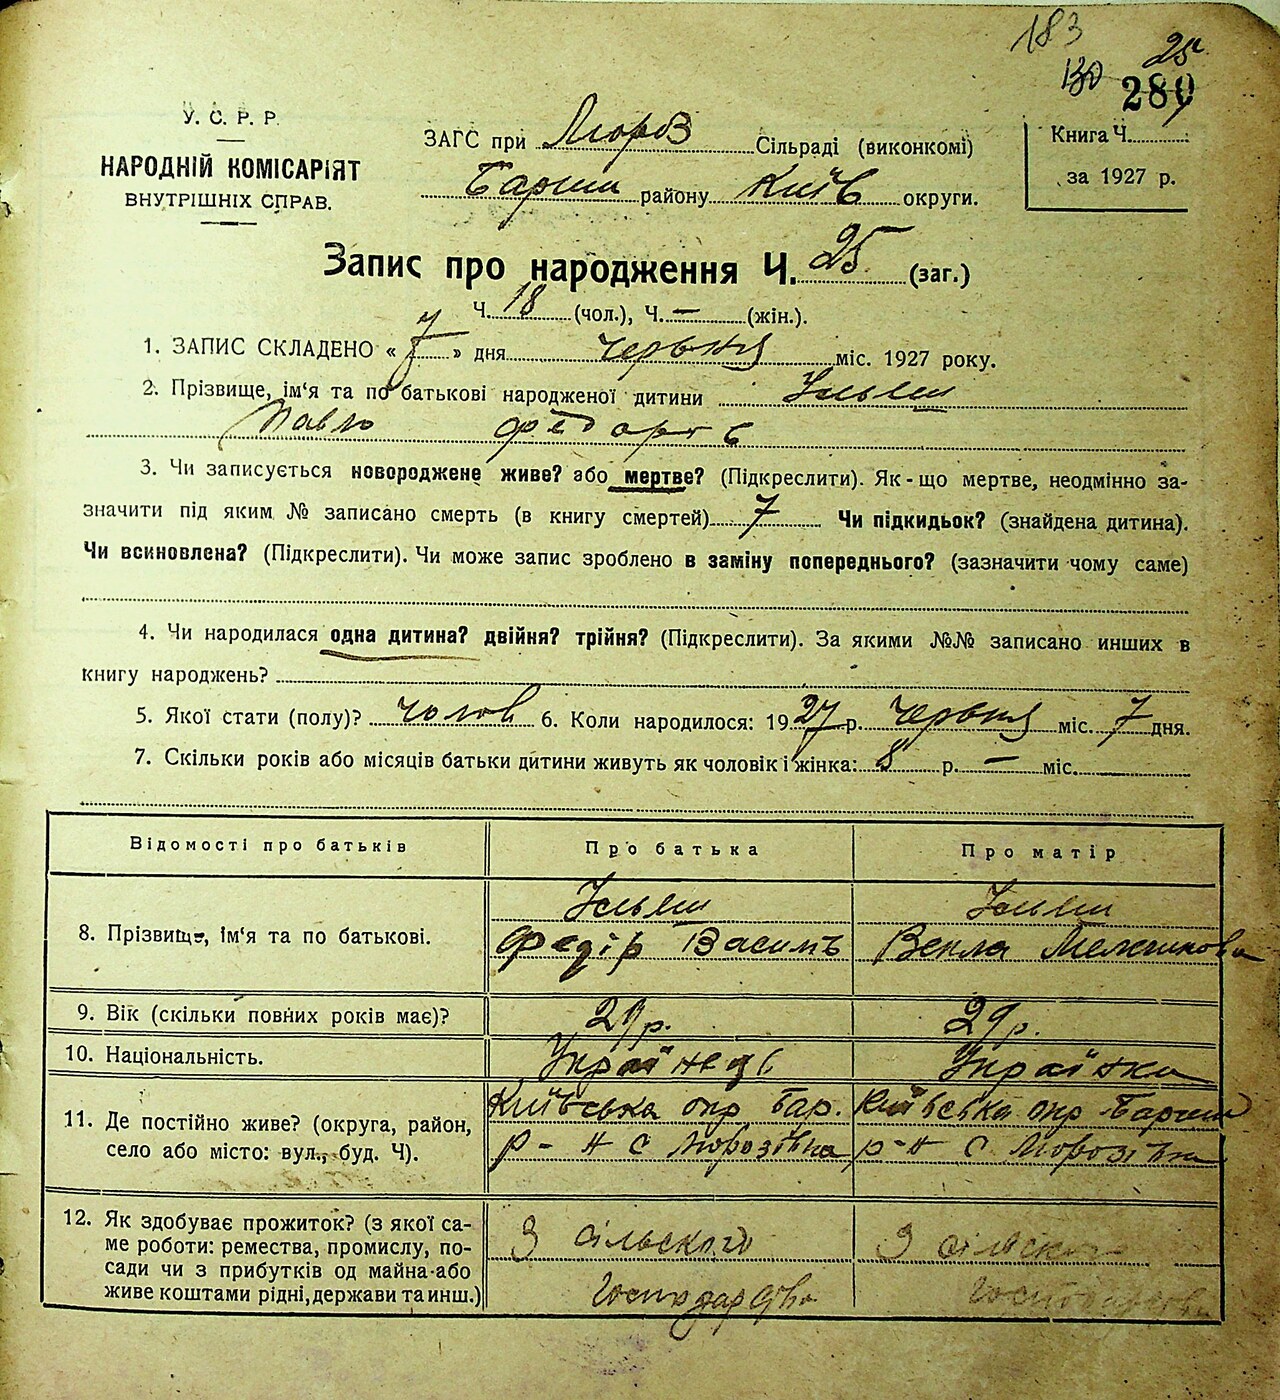 183
25
130 280
У. С. Р. Р.
НАРОДНІЙ КОМІСАРІЯТ
ВНУТРІШНІХ СПРАВ.
ЗАГС при Мороз Сільраді (виконкомі)
Барши району Київ округи.
Книга Ч.
за 1927 р.
Запис про народження Ч. 25 (заг.)
Ч. 18 (чол.), Ч. — (жін.).
1. ЗАПИС СКЛАДЕНО « 7 » дня червня міс. 1927 року.
2. Прізвище, ім'я та по батькові народженої дитини
Павло Федоров
3. Чи записується новороджене живе? або мертве? (Підкреслити). Як-що мертве, неодмінно за-
значити під яким № записано смерть (в книгу смертей) 7 Чи підкидьок? (знайдена дитина).
Чи всиновлена? (Підкреслити). Чи може запис зроблено в заміну попереднього? (зазначити чому саме)
4. Чи народилася одна дитина? двійня? трійня? (Підкреслити). За якими №№ записано инших в
книгу народжень?
5. Якої стати (полу)? чолов 6. Коли народилося: 1927 р. червня міс. 7 дня.
7. Скільки років або місяців батьки дитини живуть як чоловік і жінка: 8 р. — міс.
Відомості про батьків Про батька Про матір
8. Прізвище, ім'я та по батькові.
Федір Василь Векла
9. Вік (скільки повних років має)? 29 р. 29 р.
10. Національність. Українець Українка
11. Де постійно живе? (округа, район,
село або місто: вул., буд. Ч).
Київська окр Бар. Київська окр Барши
р-н С Морозівка р-н С Морозівка
12. Як здобуває прожиток? (з якої са-
ме роботи: ремества, промислу, по-
сади чи з прибутків од майна або
живе коштами рідні, держави та инш.)
З сільского З сільского
Господарства Господарства